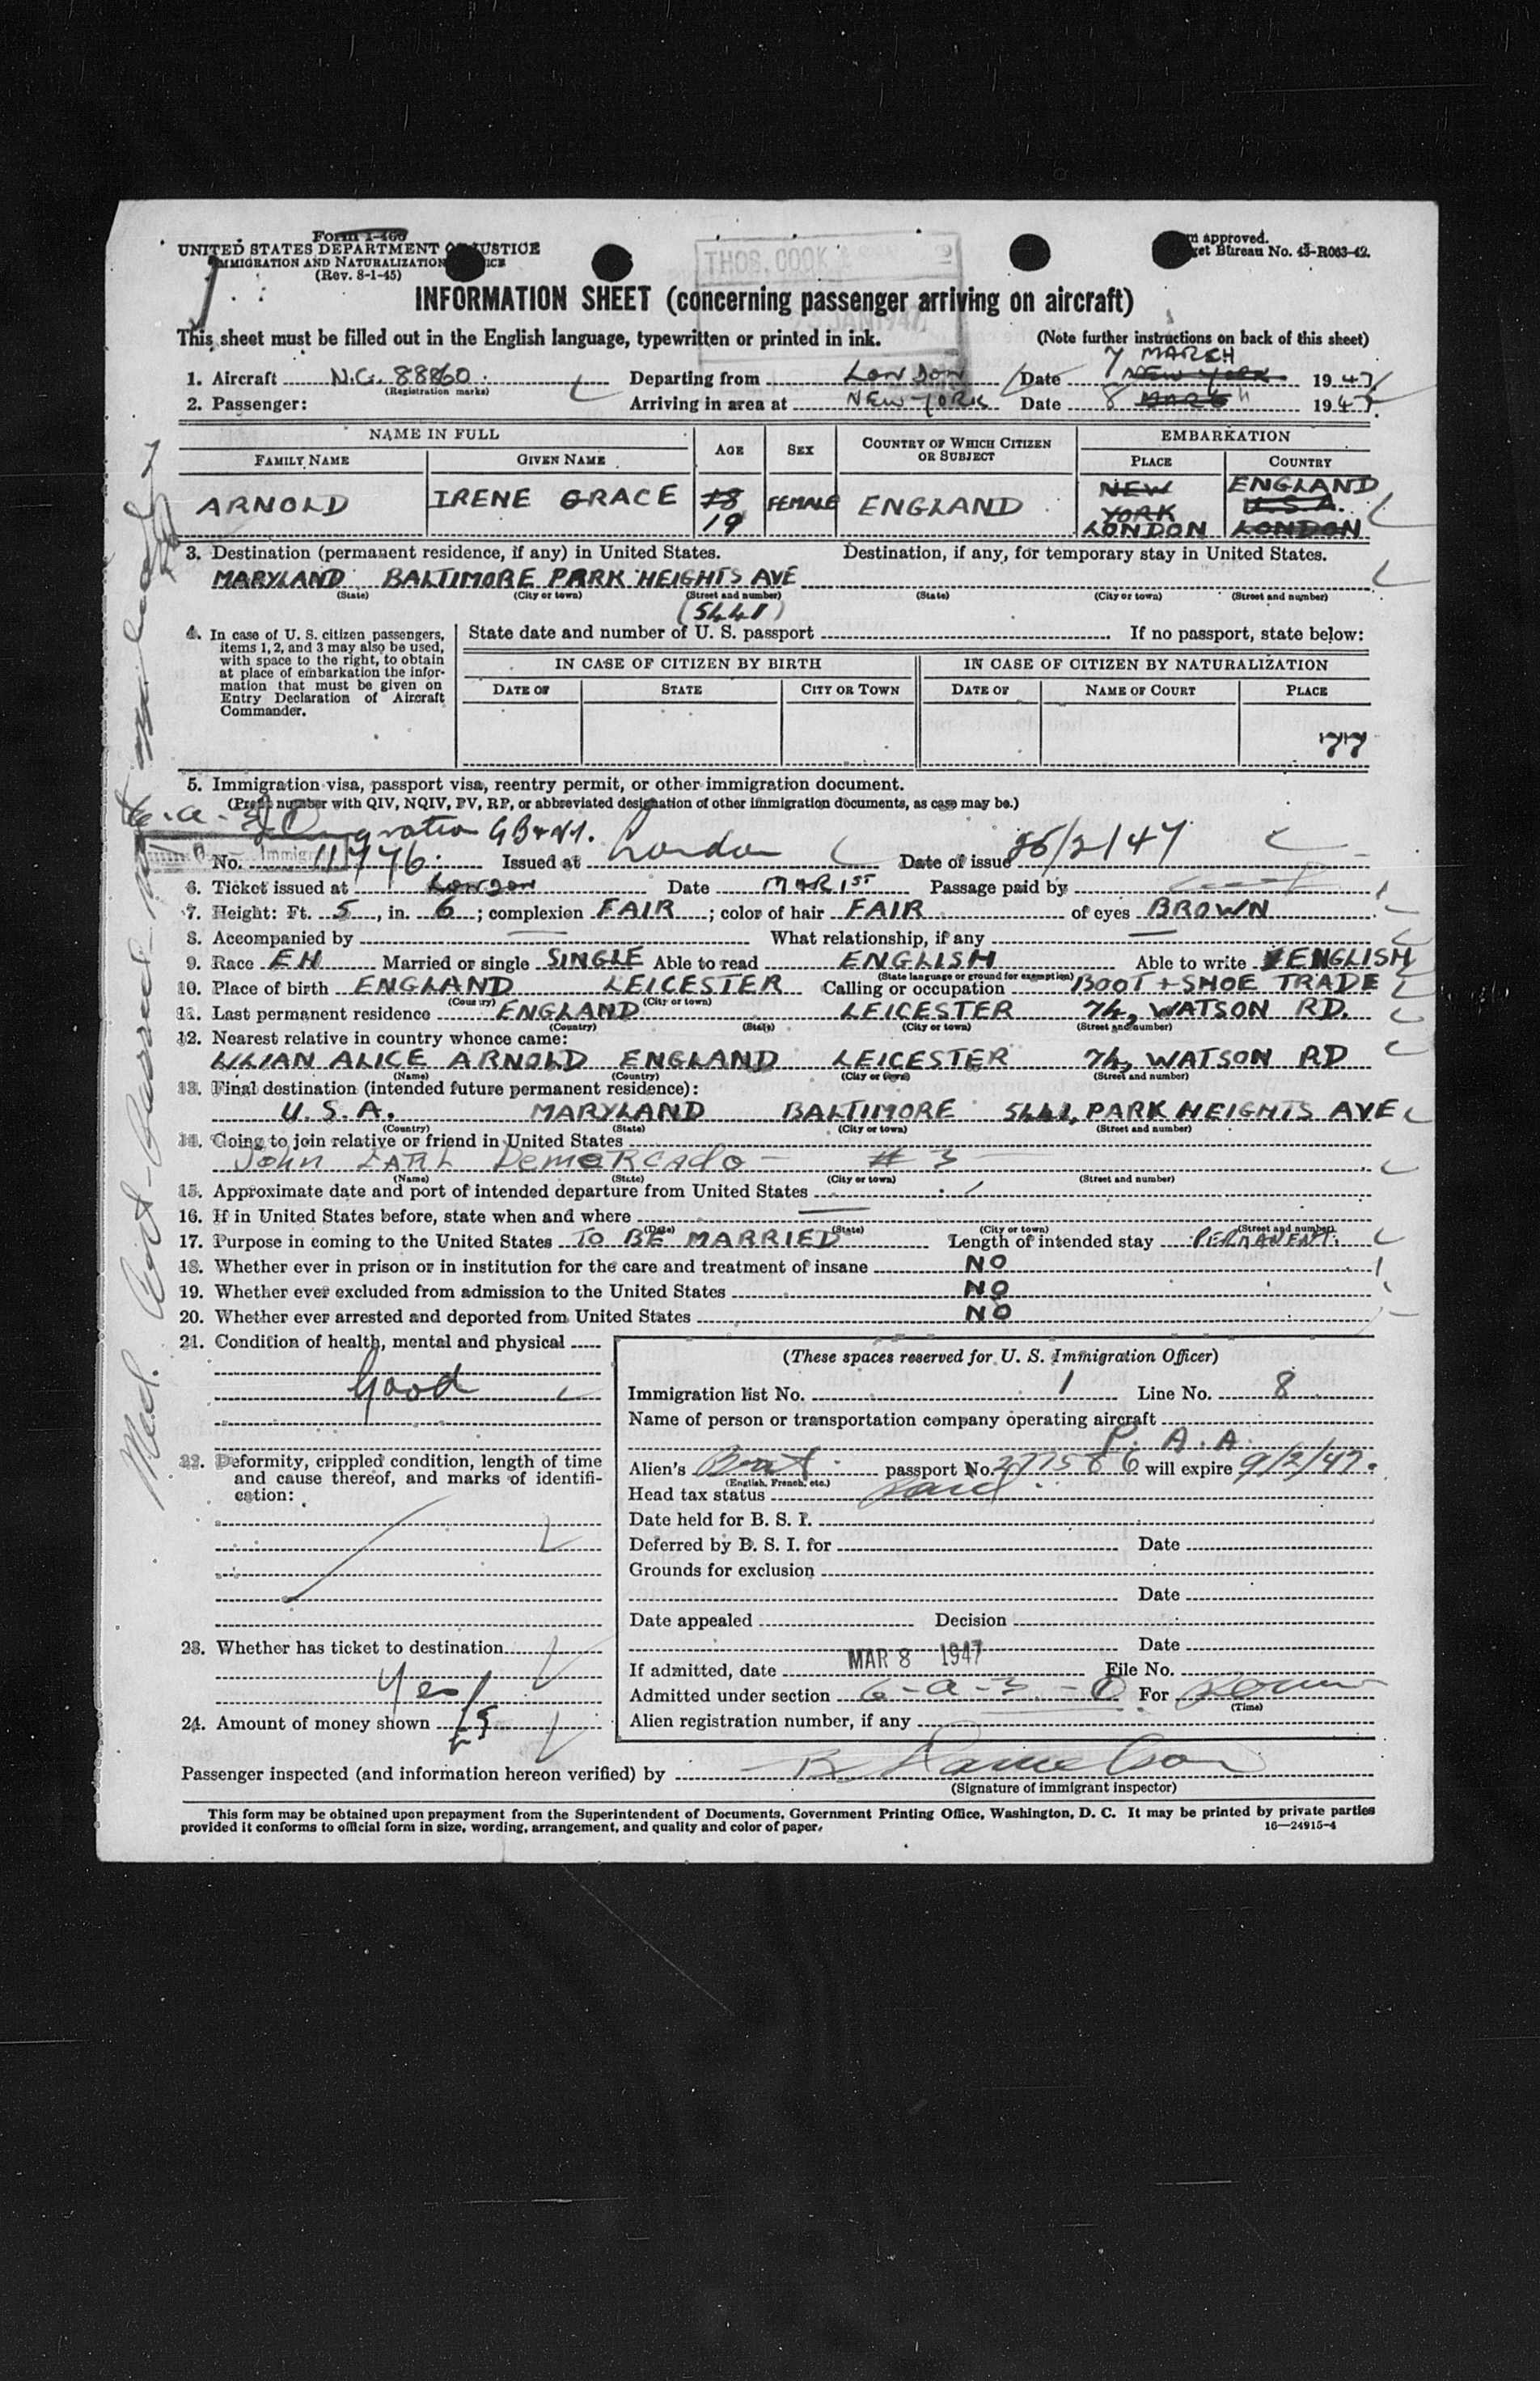 Form I-466
UNITED STATES DEPARTMENT OF JUSTICE
IMMIGRATION AND NATURALIZATION
(Rev. 8-1-45)
approved.
Bureau No. 43-R063-42.
THOS. COOK &
INFORMATION SHEET (concerning passenger arriving on aircraft)
This sheet must be filled out in the English language, typewritten or printed in ink. (Note further instructions on back of this sheet)
7 MARCH
1. Aircraft N.C. 88860. Departing from LONDON Date NEW YORK 1947
(Registration marks)
2. Passenger: Arriving in area at NEW YORK Date 8 MARCH 1947.
NAME IN FULL AGE SEX COUNTRY OF WHICH CITIZEN OR SUBJECT EMBARKATION
FAMILY NAME GIVEN NAME PLACE COUNTRY
ARNOLD IRENE GRACE 18 19 FEMALE ENGLAND NEW YORK LONDON ENGLAND U.S.A. LONDON
3. Destination (permanent residence, if any) in United States. Destination, if any, for temporary stay in United States.
MARYLAND BALTIMORE PARK HEIGHTS AVE
(State) (City or town) (Street and number) (State) (City or town) (Street and number)
(5441)
4. In case of U. S. citizen passengers, items 1, 2, and 3 may also be used, with space to the right, to obtain at place of embarkation the information that must be given on Entry Declaration of Aircraft Commander.
State date and number of U. S. passport If no passport, state below:
IN CASE OF CITIZEN BY BIRTH IN CASE OF CITIZEN BY NATURALIZATION
DATE OF STATE CITY OR TOWN DATE OF NAME OF COURT PLACE
77
5. Immigration visa, passport visa, reentry permit, or other immigration document.
(Prefix number with QIV, NQIV, PV, RP, or abbreviated designation of other immigration documents, as case may be.)
No. 11776. Issued at London Date of issue /2/47
6. Ticket issued at LONDON Date MAR 1ST Passage paid by
7. Height: Ft. 5, in. 6; complexion FAIR; color of hair FAIR of eyes BROWN
8. Accompanied by What relationship, if any
9. Race EH Married or single SINGLE Able to read ENGLISH Able to write ENGLISH
(State language or ground for exemption)
10. Place of birth ENGLAND LEICESTER Calling or occupation BOOT + SHOE TRADE
(Country) (City or town)
11. Last permanent residence ENGLAND LEICESTER 74, WATSON RD.
(Country) (State) (City or town) (Street and number)
12. Nearest relative in country whence came:
LILIAN ALICE ARNOLD ENGLAND LEICESTER 74, WATSON RD
(Name) (Country) (City or town) (Street and number)
13. Final destination (intended future permanent residence):
U.S.A. MARYLAND BALTIMORE 5441, PARK HEIGHTS AVE
(Country) (State) (City or town) (Street and number)
14. Going to join relative or friend in United States
John EARL DemeRcado - # 3
(Name) (State) (City or town) (Street and number)
15. Approximate date and port of intended departure from United States
16. If in United States before, state when and where
(Date) (State) (City or town) (Street and number)
17. Purpose in coming to the United States TO BE MARRIED Length of intended stay PERMANENT.
18. Whether ever in prison or in institution for the care and treatment of insane NO
19. Whether ever excluded from admission to the United States NO
20. Whether ever arrested and deported from United States NO
21. Condition of health, mental and physical
Good
22. Deformity, crippled condition, length of time and cause thereof, and marks of identification:
23. Whether has ticket to destination
Yes
24. Amount of money shown £5
(These spaces reserved for U. S. Immigration Officer)
Immigration list No. 1 Line No. 8
Name of person or transportation company operating aircraft
P. A. A.
Alien's Brit. passport No. 277586 will expire 9/2/47.
(English, French, etc.)
Head tax status Paid
Date held for B. S. I.
Deferred by B. S. I. for Date
Grounds for exclusion
Date
Date appealed Decision
Date
If admitted, date MAR 8 1947 File No.
Admitted under section 6-a-3 For
(Time)
Alien registration number, if any
Passenger inspected (and information hereon verified) by
(Signature of immigrant inspector)
This form may be obtained upon prepayment from the Superintendent of Documents, Government Printing Office, Washington, D. C. It may be printed by private parties
provided it conforms to official form in size, wording, arrangement, and quality and color of paper.
16—24915-4